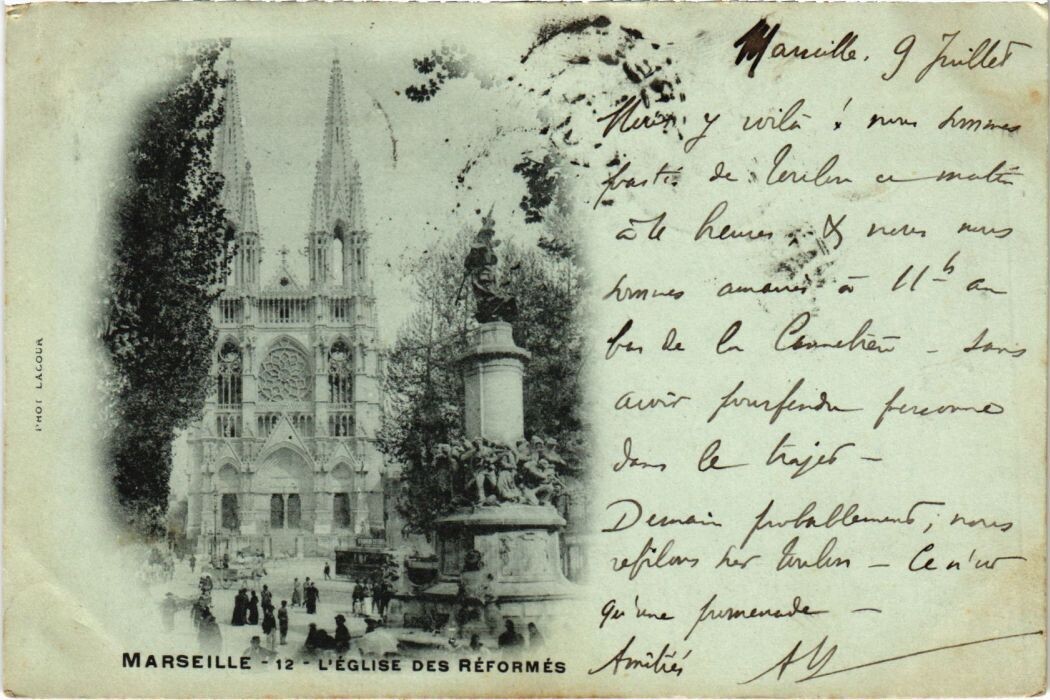 PHOT LACOUR
MARSEILLE - 12 - L'ÉGLISE DES RÉFORMÉS
Marseille. 9 Juillet
y voilà ! nous sommes
partis de Toulon ce matin
à heures & nous nous
sommes amarrés à 11h au
bas de la Cannebière - sans
avoir pourfendu personne
dans le trajet -
Demain probablement, nous
refilons sur Toulon - Ce n'est
qu'une promenade -
Amitiés